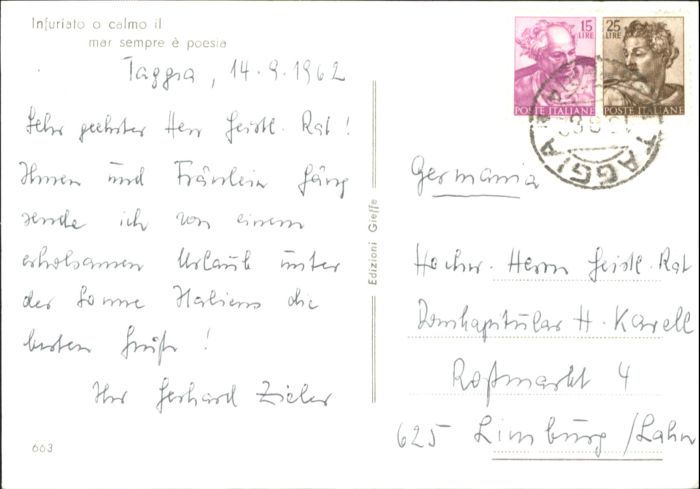 Infuriato o calmo il
mar sempre è poesia
Taggia, 14.9.1962
Sehr geehrter Herr Geistl. Rat!
Ihnen und Fräulein Gäng
sende ich von einem
erholsamen Urlaub unter
der Sonne Italiens die
besten Grüße!
Ihr Gerhard Zieler
663
Edizioni Gieffe
15
LIRE
POSTE ITALIANE
25
LIRE
POSTE ITALIANE
TAGGIA
Germania
Hochw. Herrn Geistl. Rat
Domkapitular H. Karell
Roßmarkt 4
625 Limburg/Lahn